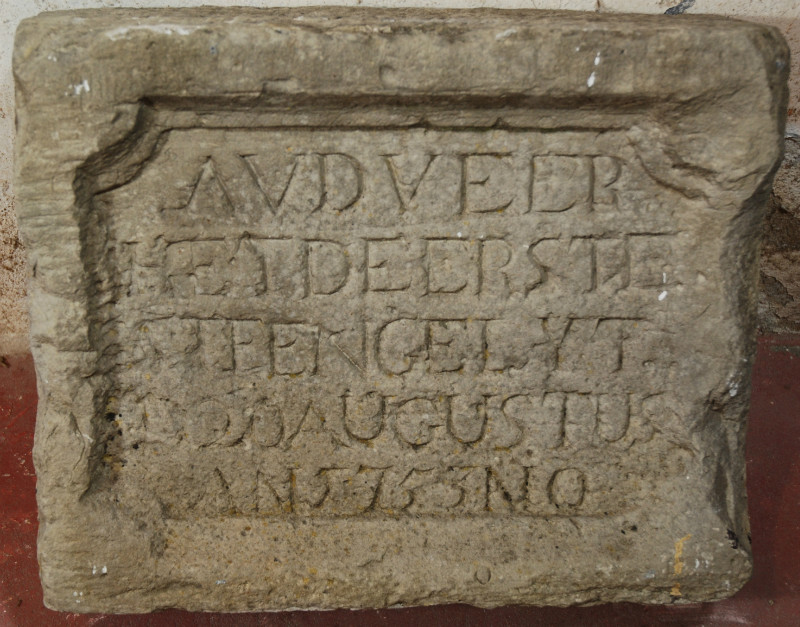 AVDVEER
HEYT DE ERSTE
STEEN GELYT
AUGUSTUS
AN 1753 NO